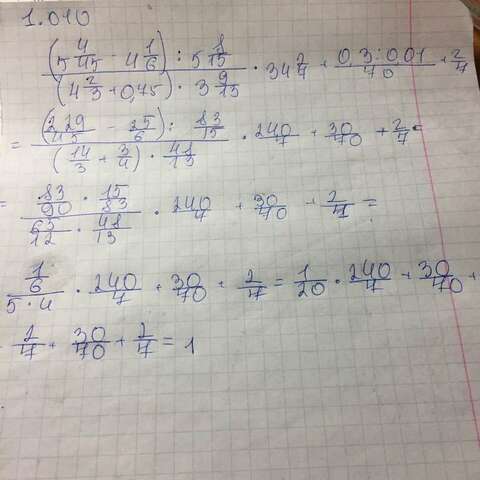 1.010
(5 4/45 - 4 1/6) : 5 8/15 / (4 2/3 + 0,75) · 3 9/13 · 34 2/7 + 0,3:0,01/70 + 2/7
= (229/45 - 25/6) : 83/15 / (14/3 + 3/4) · 48/13 · 240/7 + 30/70 + 2/7 =
= 83/90 · 15/83 / 65/12 · 48/13 · 240/7 + 30/70 + 2/7 =
1/6 / 5·4 · 240/7 + 30/70 + 2/7 = 1/20 · 240/7 + 30/70 +
2/7 + 30/70 + 2/7 = 1